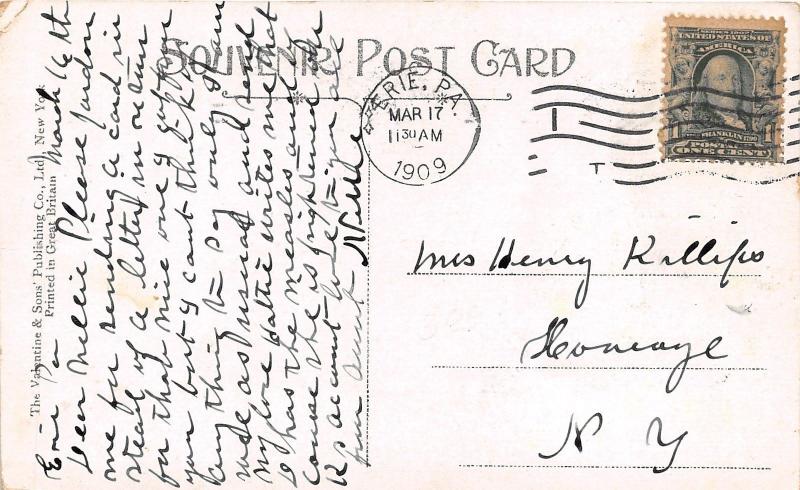 SOUVENIR POST CARD
The Valentine & Sons' Publishing Co., Ltd., New York
Printed in Great Britain
Erie Pa March 16th
Dear Nellie Please pardon
me for sending a card in
stead of a letter in return
for that nice one of
you but I cant think of
any thing to say only I am
as usual and send
my love Hattie writes me that
has the measles and of
course she is frightened
account
from Aunt Nellie
ERIE, PA.
MAR 17
11 30 AM
1909
SERIES 1902
UNITED STATES OF
AMERICA
1 FRANKLIN 1790 1
POSTAGE
ONE CENT
I
T
Mrs Henry Killips
N Y